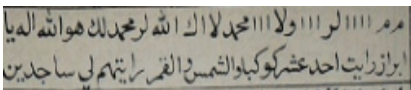 م م ا ا ا ا لر ا ا ا ولا ا ا ا محمد لا اك الله لر محمد لك هو الله اله يا
ابراز رايت احد عشر كوكبا والشمس والقمر رايتهم لي ساجدين